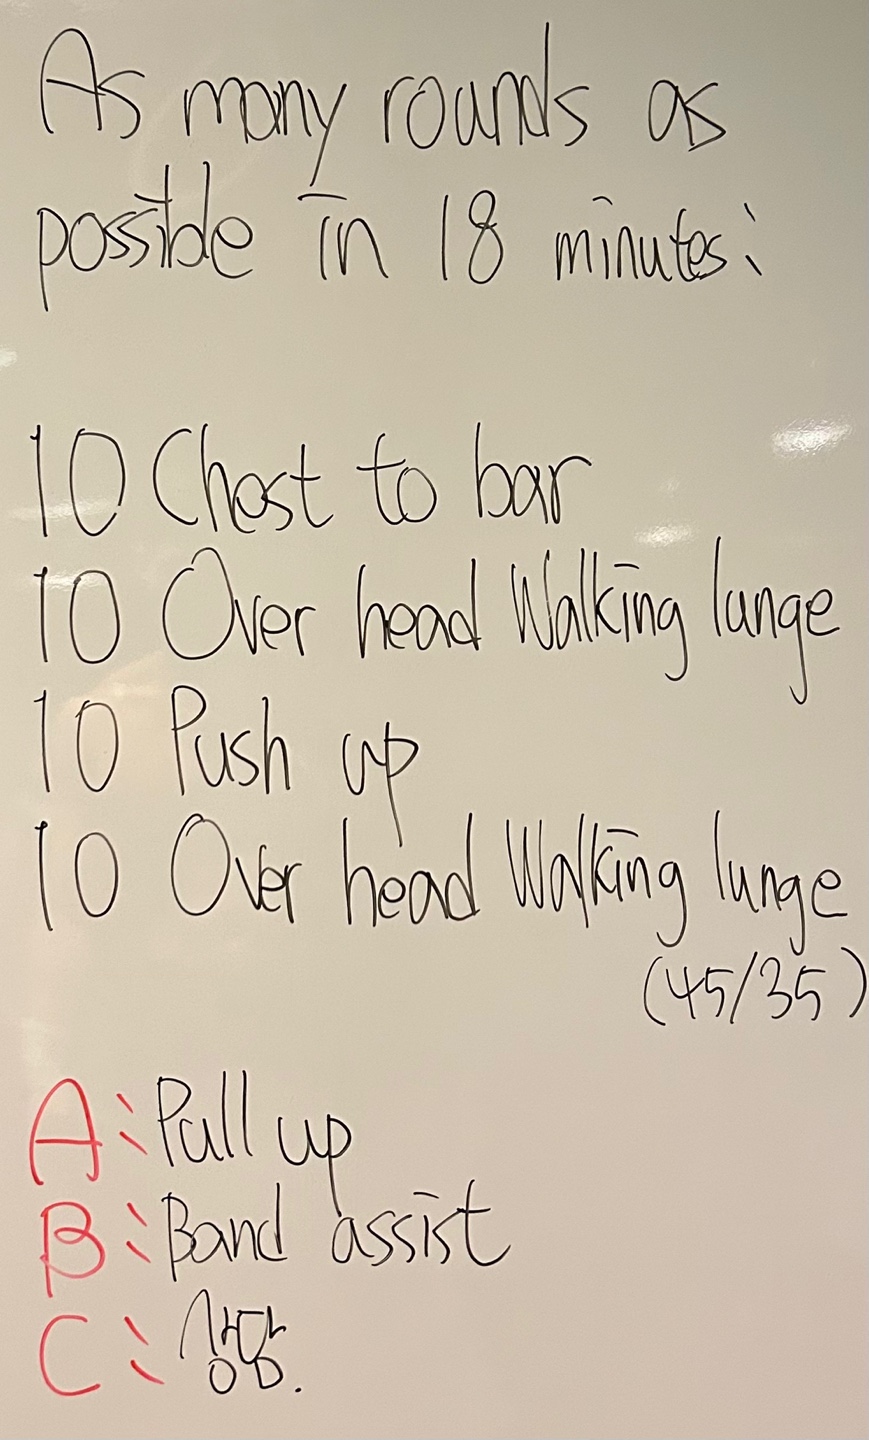 As many rounds as
possible in 18 minutes:
10 Chest to bar
10 Over head Walking lunge
10 Push up
10 Over head Walking lunge
(45/35)
A: Pull up
B: Band assist
C: 상담.